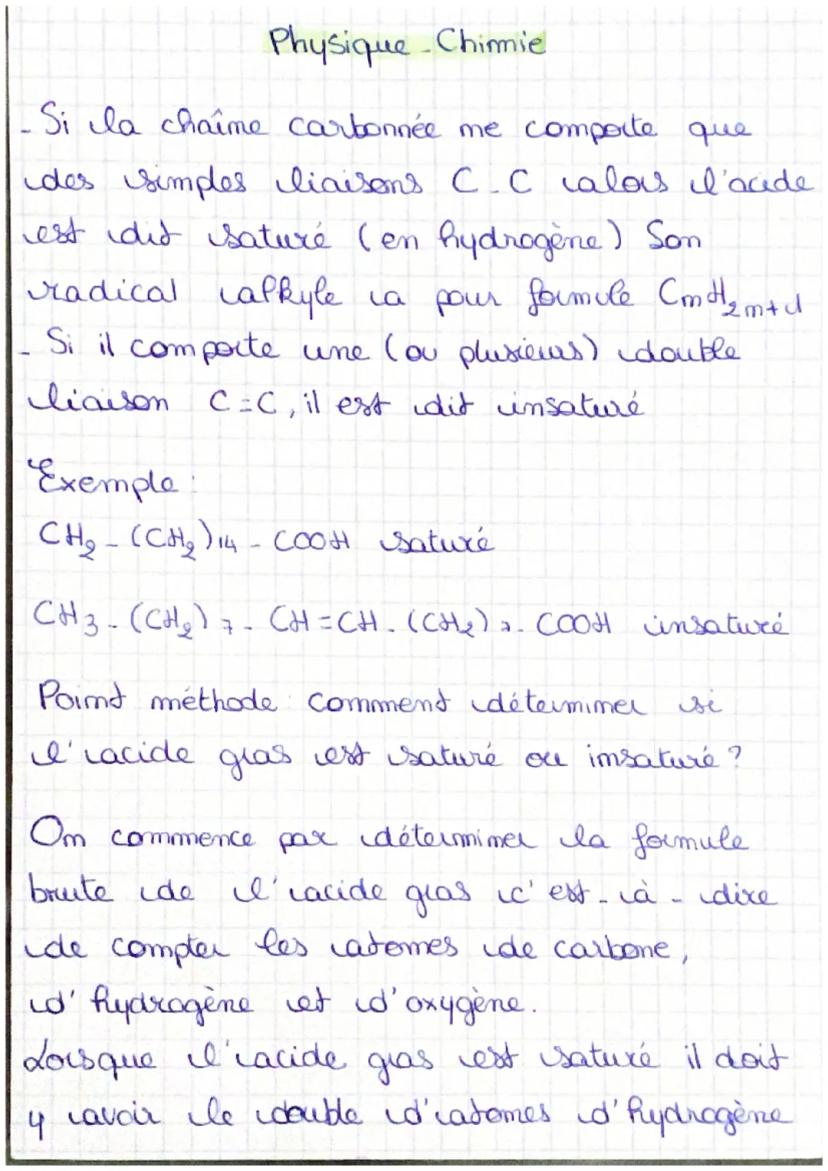 Physique - Chimie
- Si la chaîne carbonnée ne comporte que
des simples liaisons C-C alors l'acide
est dit saturé (en hydrogène) Son
radical alkyle a pour formule CnH2n+1
- Si il comporte une (ou plusieurs) double
liaison C=C, il est dit insaturé
Exemple :
CH2 - (CH2)14 - COOH saturé
CH3 - (CH2)7 - CH=CH - (CH2)7 - COOH insaturé
Point méthode : comment déterminer si
l'acide gras est saturé ou insaturé ?
On commence par déterminer la formule
brute de l'acide gras c'est-à-dire
de compter les atomes de carbone,
d'hydrogène et d'oxygène.
Lorsque l'acide gras est saturé il doit
y avoir le double d'atomes d'hydrogène